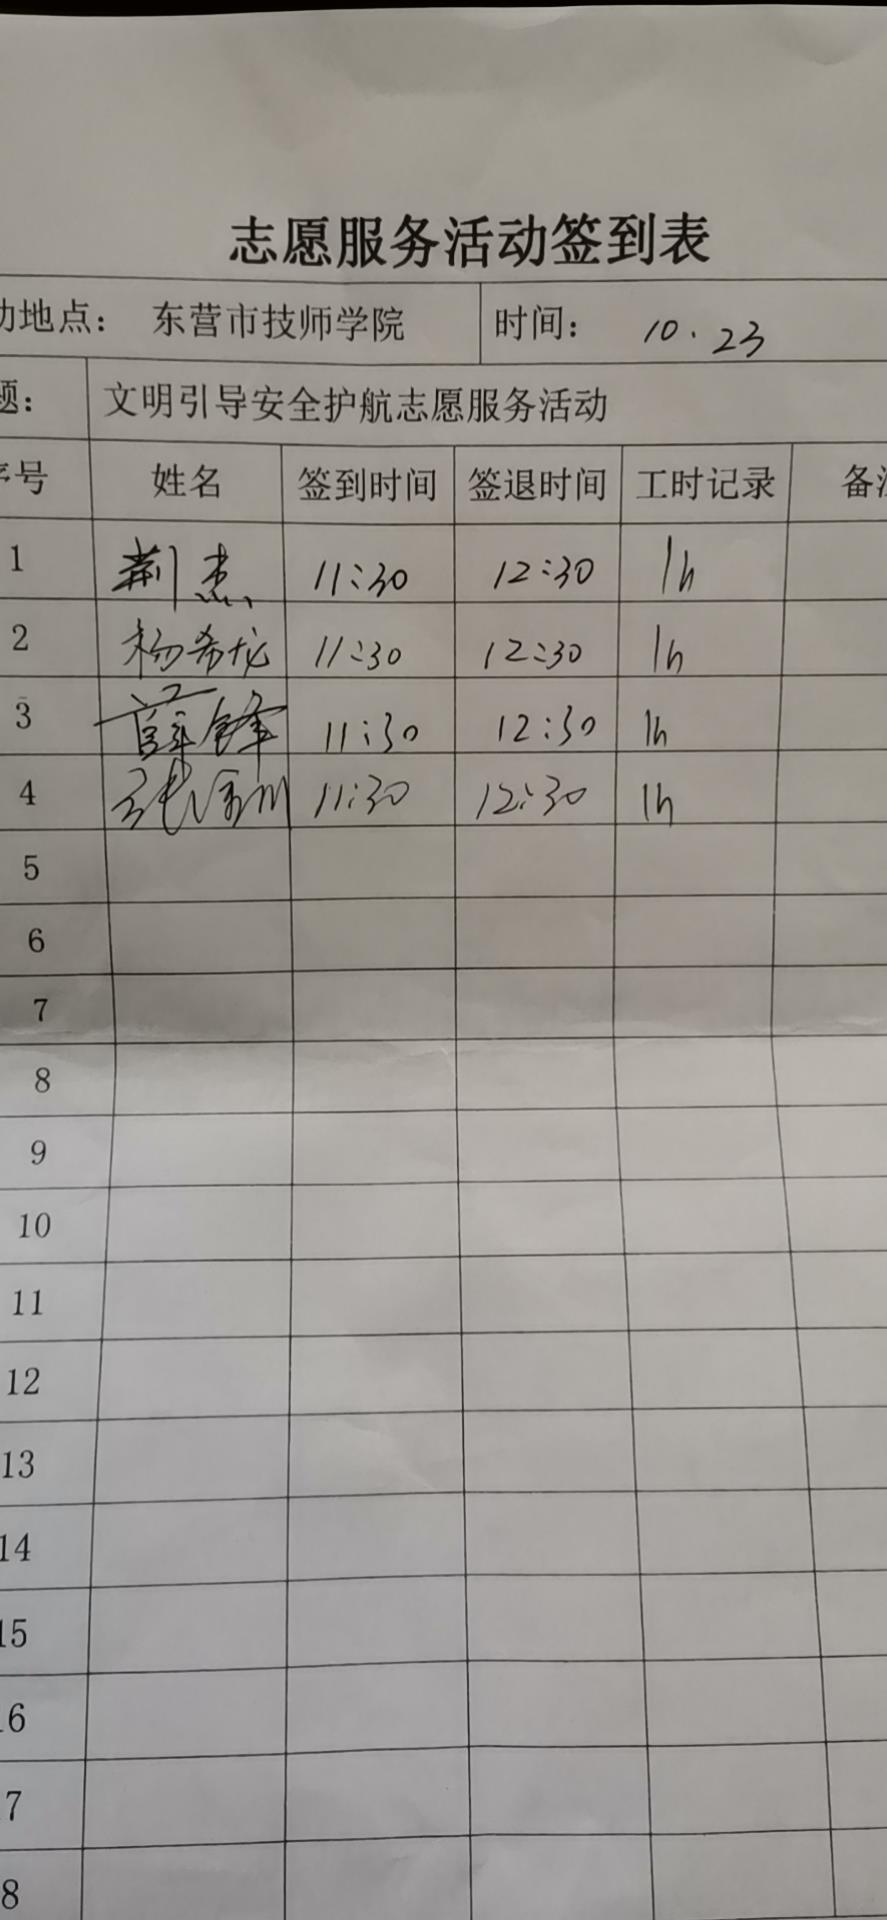 志愿服务活动签到表
动地点： 东营市技师学院 时间： 10.23
题： 文明引导安全护航志愿服务活动
序号 姓名 签到时间 签退时间 工时记录 备注
1 荆杰 11:30 12:30 1h
2 杨希龙 11:30 12:30 1h
3 薛锋 11:30 12:30 1h
4 张 11:30 12:30 1h
5
6
7
8
9
10
11
12
13
14
15
16
17
18